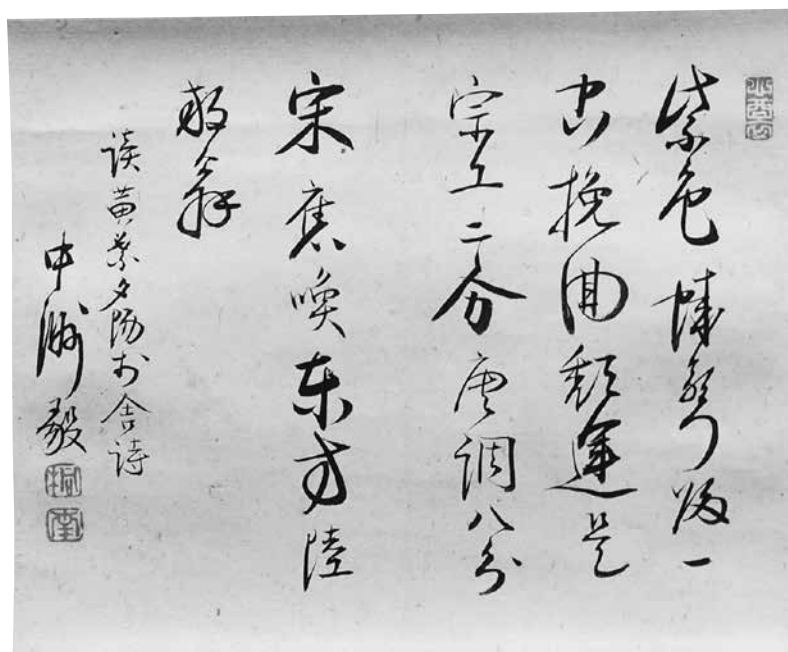 紫色蛙聲歸一
空挽回頽運是
宗工二分唐調八分
宋應喚東方陸
放翁
讀黄葉夕陽村舍詩
中洲毅